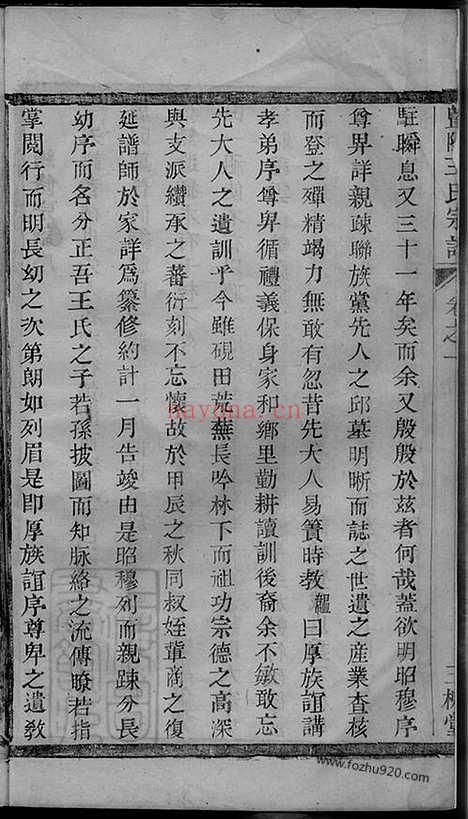 暨陽王氏宗譜 卷之一 三槐堂
駐瞬息又三十一年矣而余又殷殷於茲者何哉蓋欲明昭穆序
尊畀詳親疎聯族黨先人之邱墓明晰而誌之世遺之産業查核
而登之殫精竭力無敢有忽昔先大人易簀時教 曰厚族誼講
孝弟序尊畀循禮義保身家和鄉里勤耕讀訓後裔余不敏敢忘
先大人之遺訓乎今雖硯田荒蕪長吟林下而祖功宗德之高深
與支派纘承之蕃衍刻不忘懷故於甲辰之秋同叔姪軰商之復
延譜師於家詳爲纂修約計一月告竣由是昭穆列而親踈分長
幼序而名分正吾王氏之子若孫披圖而知脉絡之流傳瞭若指
掌閱行而明長幼之次第朗如列眉是即厚族誼序尊卑之遺敎
nayona.cn
www.fozhu920.com